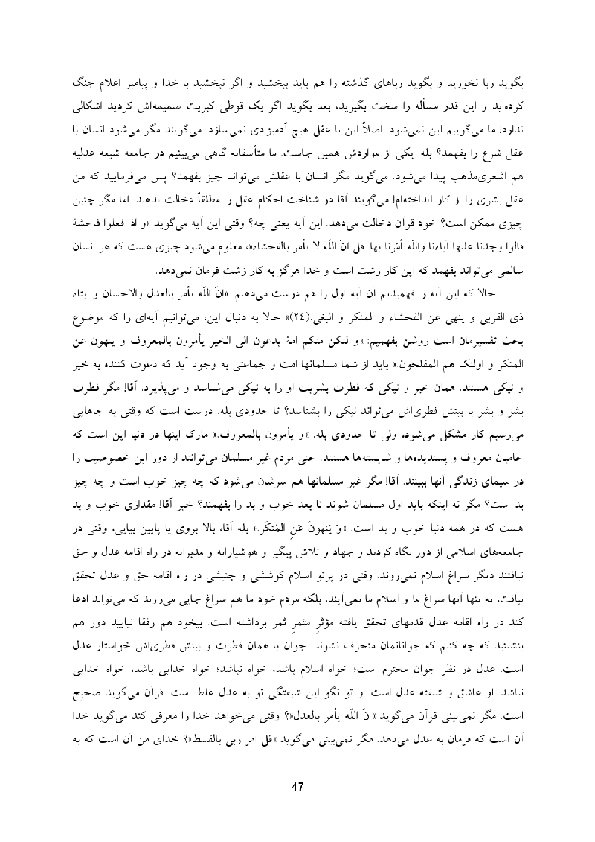 بگوید ربا نخورید و بگوید رباهای گذشته را هم باید ببخشید و اگر نبخشید با خدا و پیامبر اعلام جنگ
کرده‌اید و این قدر مسأله را سخت بگیرید، بعد بگوید اگر یک قوطی کبریت ضمیمه‌اش کردید اشکالی
ندارد، ما می‌گوییم این نمی‌شود. اصلاً این با عقل هیچ آدمیزادی نمی‌سازد. می‌گویند مگر می‌شود انسان با
عقل شرع را بفهمد؟ بله یکی از مواردش همین جاست. ما متأسفانه گاهی می‌بینیم در جامعه شیعه عدلیه
هم اشعری‌مذهب پیدا می‌شود، می‌گوید مگر انسان با عقلش می‌تواند چیز بفهمد؟ پس می‌فرمایید که من
عقل بشری را از کار انداخته‌ام! می‌گویند آقا در شناخت احکام عقل را مطلقاً دخالت ندهید. اما مگر چنین
چیزی ممکن است؟ خود قرآن دخالت می‌دهد. این آیه یعنی چه؟ وقتی این آیه می‌گوید «و اذا فعلوا فاحشة
قالوا وجدنا علیها آباءنا والله أمرنا بها قل انّ الله لا یأمر بالفحشاء» معلوم می‌شود چیزی هست که هر انسان
سالمی می‌تواند بفهمد که این کار زشت است و خدا هرگز به کار زشت فرمان نمی‌دهد.
حالا که این آیه را فهمیدیم آن آیه اول را هم درست می‌دهیم «انّ الله یأمر بالعدل والاحسان و ایتاء
ذی القربی و ینهی عن الفحشاء و المنکر و البغی.(٢٤)» حالا به دنبال این، می‌توانیم آیه‌ای را که موضوع
بحث تفسیرمان است روشن بفهمیم: «و لتکن منکم امة یدعون الی الخیر یأمرون بالمعروف و ینهون عن
المنکر و اولئک هم المفلحون» باید از شما مسلمانها امت و جماعتی به وجود آید که دعوت کننده به خیر
و نیکی هستند، همان خیر و نیکی که فطرت بشریت او را به نیکی می‌شناسد و می‌پذیرد. آقا! مگر فطرت
بشر و بشر با بینش فطری‌اش می‌تواند نیکی را بشناسد؟ تا حدودی بله. درست است که وقتی به جاهایی
می‌رسیم کار مشکل می‌شود، ولی تا حدودی بله. «و یأمرون بالمعروف.» مارک اینها در دنیا این است که
حامیان معروف و پسندیده‌ها و شایسته‌ها هستند. حتی مردم غیر مسلمان می‌توانند از دور این خصوصیت را
در سیمای زندگی آنها ببینند. آقا! مگر غیر مسلمانها هم سرشان می‌شود که چه چیز خوب است و چه چیز
بد است؟ مگر نه اینکه باید اول مسلمان شوند تا بعد خوب و بد را بفهمند؟ خیر آقا! مقداری خوب و بد
هست که در همه دنیا خوب و بد است. «و یَنهونَ عَنِ المُنکَر.» بله آقا، بالا بروی یا پایین بیایی، وقتی در
جامعه‌های اسلامی از دور نگاه کردند و جهاد و تلاش پیگیر و هوشیارانه و مدبرانه در راه اقامه عدل و حق
نیافتند دیگر سراغ اسلام نمی‌روند. وقتی در پرتو اسلام کوششی و جنبشی در راه اقامه حق و عدل تحقق
نیافت، نه تنها آنها سراغ ما و اسلام ما نمی‌آیند، بلکه مردم خود ما هم سراغ جایی می‌روند که می‌تواند ادعا
کند در راه اقامه عدل قدمهای تحقق یافته مؤثرِ مثمرِ ثمر برداشته است. بیخود هم رفقا نیایید دور هم
بنشینند که چه کنیم که جوانانمان منحرف نشوند. جوان با همان فطرت و بینش فطری‌اش خواستار عدل
است. عدل در نظر جوان محترم است؛ خواه اسلام باشد، خواه نباشد؛ خواه خدایی باشد، خواه خدایی
نباشد. او عاشق و شیفته عدل است. و تو نگو این شیفتگی تو به عدل غلط است. قرآن می‌گوید صحیح
است. مگر نمی‌بینی قرآن می‌گوید «انّ الله یأمر بالعدل»؟ وقتی می‌خواهد خدا را معرفی کند می‌گوید خدا
آن است که فرمان به عدل می‌دهد. مگر نمی‌بینی می‌گوید «قل امر ربی بالقسط»؟ خدای من آن است که به
47